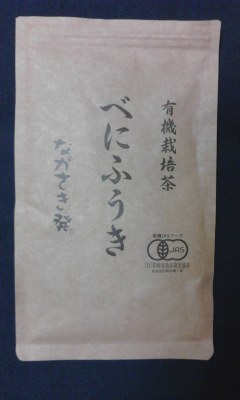 有機栽培茶
べにふうき
ながさき発。
有機JASマーク
JAS